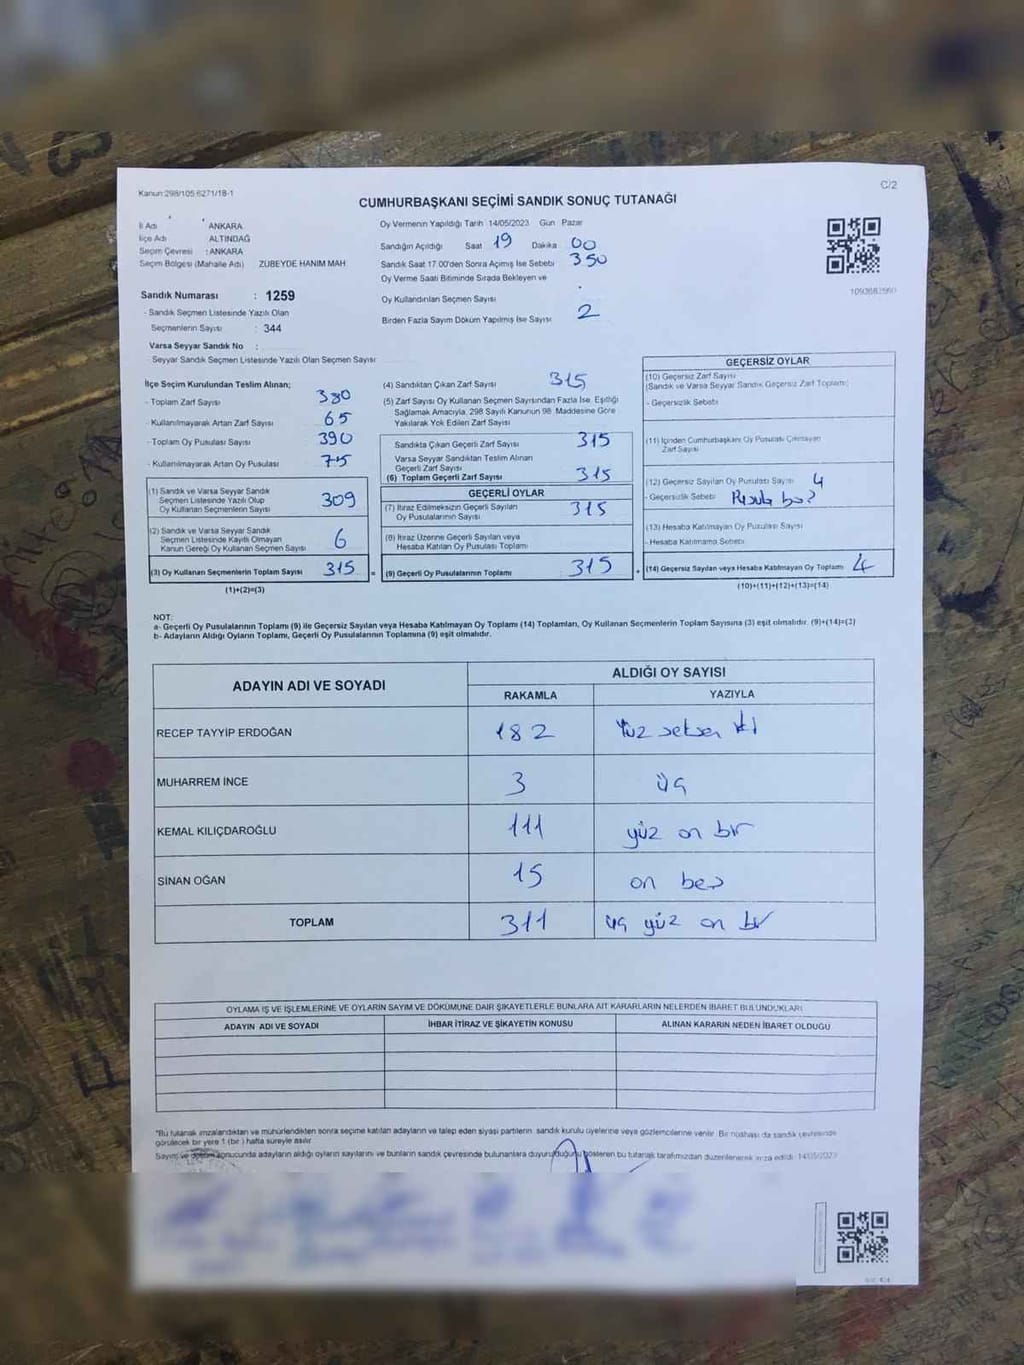 Kanun 298/105,6271/18-1
C/2
CUMHURBAŞKANI SEÇİMİ SANDIK SONUÇ TUTANAĞI
İl Adı : ANKARA
İlçe Adı ALTINDAĞ
Seçim Çevresi : ANKARA
Seçim Bölgesi (Mahalle Adı) ZÜBEYDE HANIM MAH
Sandık Numarası : 1259
- Sandık Seçmen Listesinde Yazılı Olan
Seçmenlerin Sayısı : 344
Varsa Seyyar Sandık No :
- Seyyar Sandık Seçmen Listesinde Yazılı Olan Seçmen Sayısı
Oy Vermenin Yapıldığı Tarih 14/05/2023 Gün Pazar
Sandığın Açıldığı Saat 19 Dakika 00
Sandık Saat 17.00'den Sonra Açılmış İse Sebebi 350
Oy Verme Saati Bitiminde Sırada Bekleyen ve
Oy Kullandırılan Seçmen Sayısı
Birden Fazla Sayım Döküm Yapılmış İse Sayısı 2
İlçe Seçim Kurulundan Teslim Alınan;
- Toplam Zarf Sayısı 380
- Kullanılmayarak Artan Zarf Sayısı 65
- Toplam Oy Pusulası Sayısı 390
- Kullanılmayarak Artan Oy Pusulası 75
(1) Sandık ve Varsa Seyyar Sandık
Seçmen Listesinde Yazılı Olup
Oy Kullanan Seçmenlerin Sayısı 309
(2) Sandık ve Varsa Seyyar Sandık
Seçmen Listesinde Kayıtlı Olmayan
Kanun Gereği Oy Kullanan Seçmen Sayısı 6
(3) Oy Kullanan Seçmenlerin Toplam Sayısı 315 =
(1)+(2)=(3)
(4) Sandıktan Çıkan Zarf Sayısı 315
(5) Zarf Sayısı Oy Kullanan Seçmen Sayısından Fazla İse, Eşitliği
Sağlamak Amacıyla, 298 Sayılı Kanunun 98. Maddesine Göre
Yakılarak Yok Edilen Zarf Sayısı
Sandıkta Çıkan Geçerli Zarf Sayısı 315
Varsa Seyyar Sandıktan Teslim Alınan
Geçerli Zarf Sayısı
(6) Toplam Geçerli Zarf Sayısı 315
GEÇERLİ OYLAR
(7) İtiraz Edilmeksizin Geçerli Sayılan
Oy Pusulalarının Sayısı 315
(8) İtiraz Üzerine Geçerli Sayılan veya
Hesaba Katılan Oy Pusulası Toplamı
(9) Geçerli Oy Pusulalarının Toplamı 315
GEÇERSİZ OYLAR
(10) Geçersiz Zarf Sayısı
(Sandık ve Varsa Seyyar Sandık Geçersiz Zarf Toplamı)
- Geçersizlik Sebebi
(11) İçinden Cumhurbaşkanı Oy Pusulası Çıkmayan
Zarf Sayısı
(12) Geçersiz Sayılan Oy Pusulası Sayısı 4
- Geçersizlik Sebebi
(13) Hesaba Katılmayan Oy Pusulası Sayısı
- Hesaba Katılmama Sebebi
(14) Geçersiz Sayılan veya Hesaba Katılmayan Oy Toplamı 4
(10)+(11)+(12)+(13)=(14)
NOT:
a- Geçerli Oy Pusulalarının Toplamı (9) ile Geçersiz Sayılan veya Hesaba Katılmayan Oy Toplamı (14) Toplamları, Oy Kullanan Seçmenlerin Toplam Sayısına (3) eşit olmalıdır. (9)+(14)=(3)
b- Adayların Aldığı Oyların Toplamı, Geçerli Oy Pusulalarının Toplamına (9) eşit olmalıdır.
ADAYIN ADI VE SOYADI ALDIĞI OY SAYISI
RAKAMLA YAZIYLA
RECEP TAYYİP ERDOĞAN 182 Yüz seksen iki
MUHARREM İNCE 3 üç
KEMAL KILIÇDAROĞLU 111 yüz on bir
SİNAN OĞAN 15 on beş
TOPLAM 311 üç yüz on bir
OYLAMA İŞ VE İŞLEMLERİNE VE OYLARIN SAYIM VE DÖKÜMÜNE DAİR ŞİKAYETLERLE BUNLARA AİT KARARLARIN NELERDEN İBARET BULUNDUKLARI
ADAYIN ADI VE SOYADI İHBAR İTİRAZ VE ŞİKAYETİN KONUSU ALINAN KARARIN NEDEN İBARET OLDUĞU
*Bu tutanak imzalandıktan ve mühürlendikten sonra seçime katılan adayların ve talep eden siyasi partilerin sandık kurulu üyelerine veya gözlemcilerine verilir. Bir nüshası da sandık çevresinde
görülecek bir yere 1 (bir) hafta süreyle asılır
Sayım ve döküm sonucunda adayların aldığı oyların sayılarını ve bunların sandık çevresinde bulunanlara duyurulduğunu gösteren bu tutanak tarafımızdan düzenlenerek imza edildi. 14/05/2023